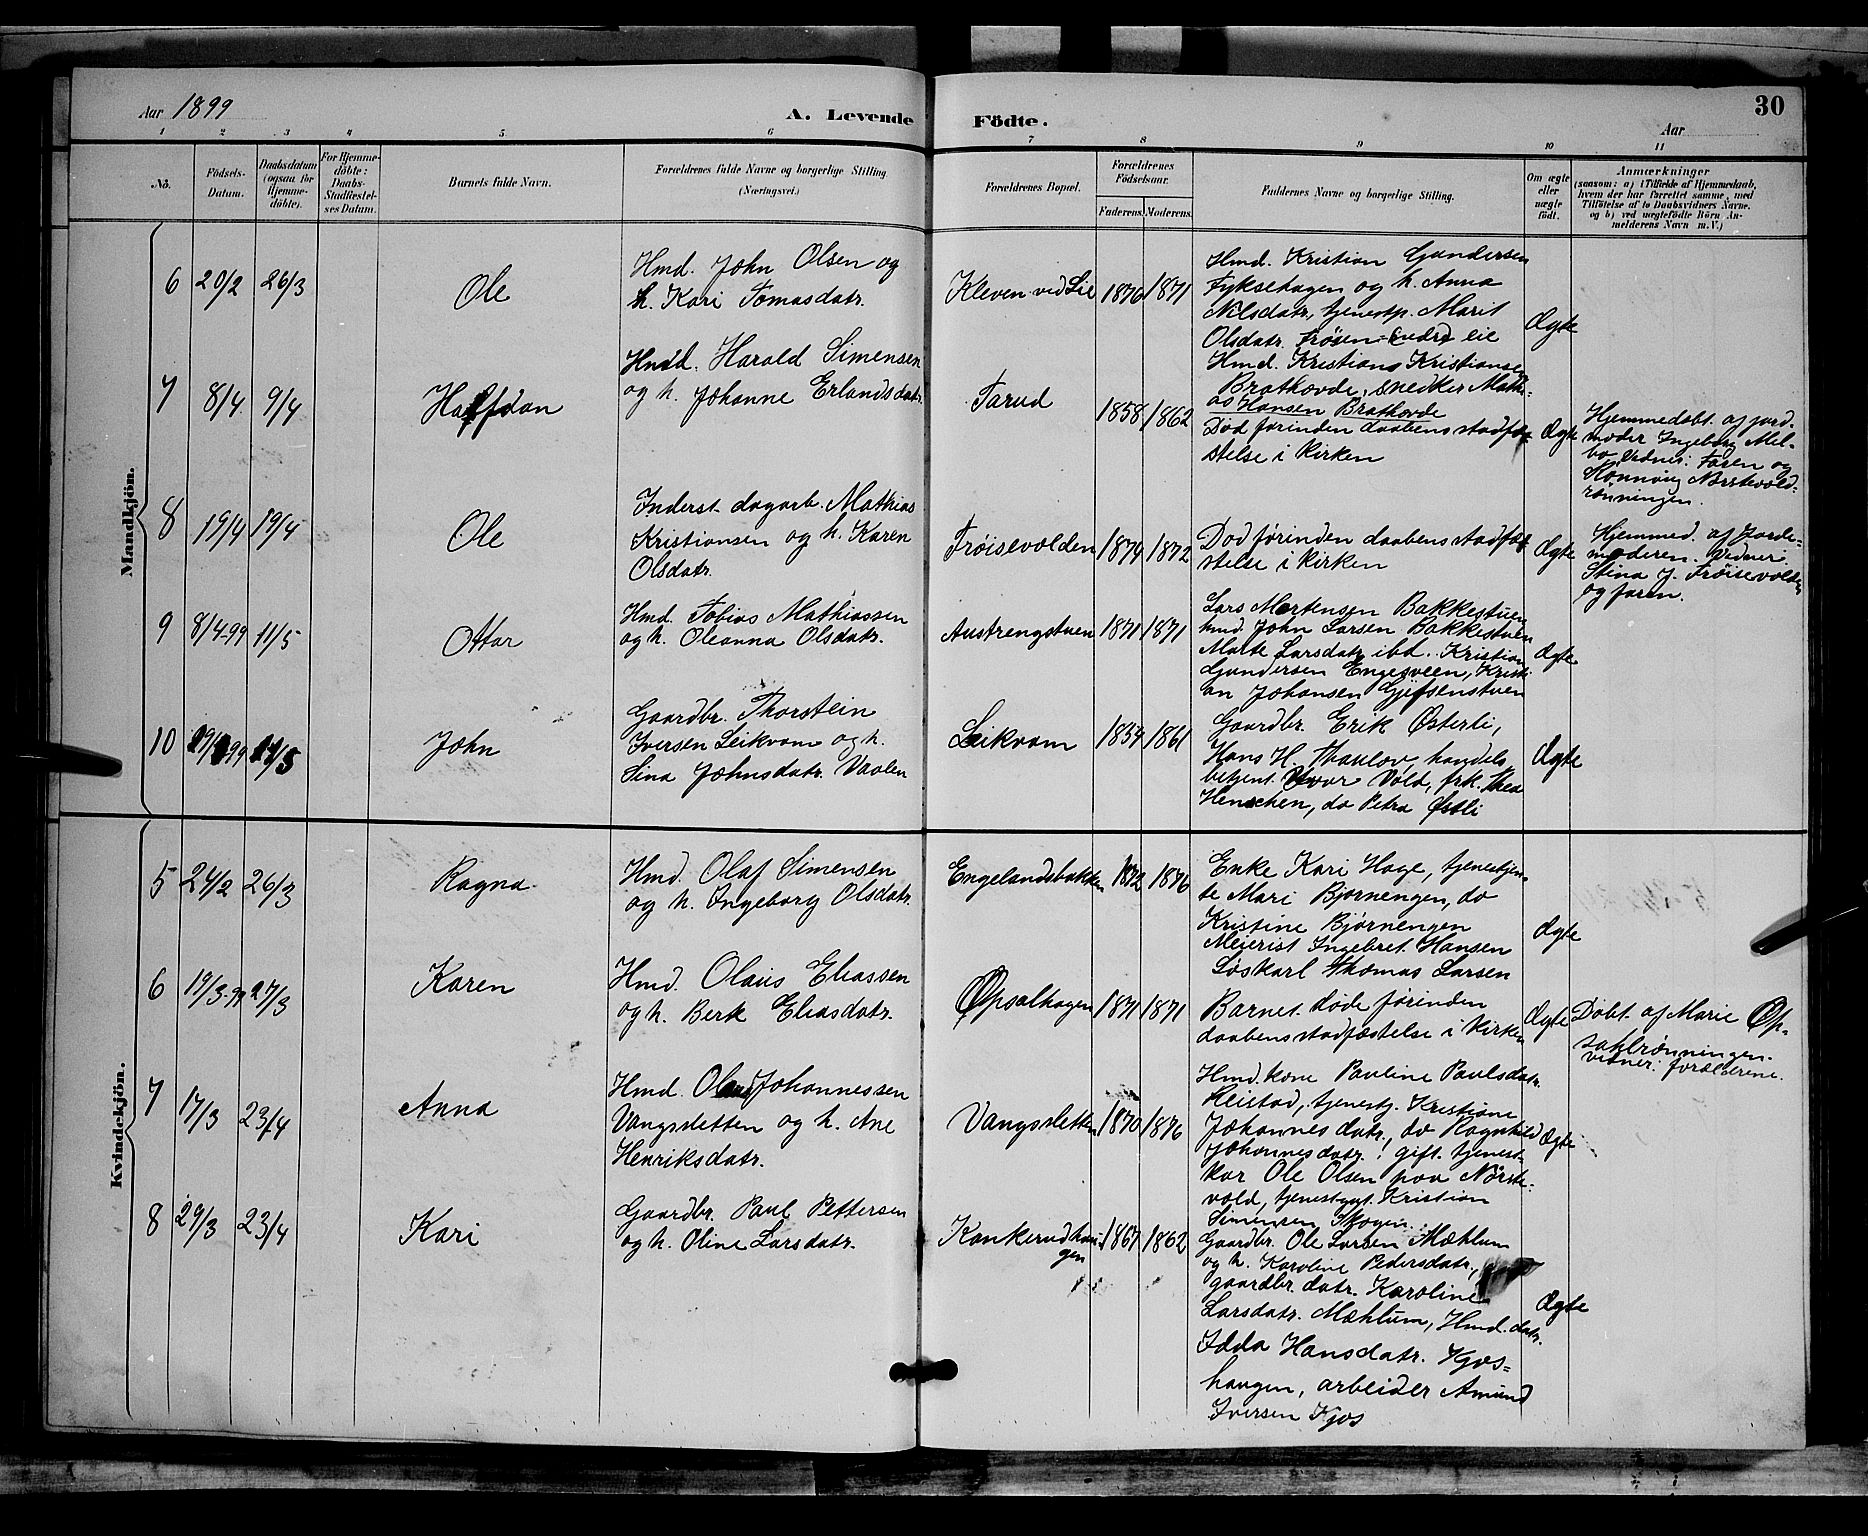 Aar 1899
A. Levende Födte.
30
Aar
1 2 3 4 5 6 7 8 9 10 11
No.
Födsels-Datum.
Daabsdatum (ogsaa for Hjemme-döbte).
For Hjemme-döbte: Daabs-Stadfæstel-ses Datum.
Barnets fulde Navn.
Forældrenes fulde Navne og borgerlige Stilling (Næringsvei.)
Forældrenes Bopæl.
Forældrenes Födselsaar.
Faderens. Moderens.
Faddernes Navne og borgerlige Stilling.
Om ægte eller uægte födt.
Anmærkninger
(saasom: a) i Tilfælde af Hjemmedaab,
hvem der har forrettet samme, med
Tilföielse af to Daabsvidners Navne.
og b) ved uægtefödte Börn An-
melderens Navn m.V.)
Mandkjön.
6 20/2 26/3
Ole
Hmd. John Olsen og
h. Kari Tomasdatr.
Kleven ved Lie
1876 1871
Hmd. Kristian Gundersen
Fyksehagen og h. Anna
Nilsdatr, tjenestp. Marit
Olsdatr. Frøsen Nedre eie
Ægte
7 8/4 9/4
Halfdan
Hmd. Harald Simensen
og h. Johanne Erlandsdatr.
Tarud
1858 1862
Hmd. Kristians Kristiansen
Brathovde, snedker Math-
as Hansen Brathovde
Død førinden daabens stadfæ-
stelse i kirken
Ægte
Hjemmedøbt af jord-
moder Ingeborg Mel-
bo. Vidner: Faren og
Rønnøug Nørstevold-
rønningen.
8 19/4 19/4
Ole
Inderst dagarb. Mathias
Kristiansen og h. Karen
Olsdatr.
Frøisevolden
1874 1872
Død førinden daabens stadfæ-
stelse i kirken
Ægte
Hjemmed. af Jorde-
moderen. Vidner:
Stina J. Frøisevolden
og faren.
9 8/4 99 11/5
Ottar
Hmd. Tobias Mathiassen
og h. Oleanna Olsdatr.
Austrengstuen
1871 1871
Lars Mortensen Bakkestuen
hmd. John Larsen Bakkestuen
Marte Larsdatr ibd. Kristian
Gundersen Engesveen, Kristi-
an Johansen Gjefsenstuen
Ægte
10 99 11/5
John
Gaardbr. Thorstein
Iversen Leikvam og h.
Sina Johnsdatr. Vaalen
Leikvam
1854 1861
Gaardbr. Erik Østerli,
Hans H. Thaulov, handels
betjent Ivar Vold, frk. Thea
Henschen, do Petra Østli
Ægte
Kvindekjön.
5 24/2 26/3
Ragna
Hmd. Olaf Simensen
og h. Ingeborg Olsdatr.
Engelandsbakken
1872 1876
Enke Kari Hage, tjenestjen-
te Mari Bjørnengen, do
Kristine Bjørnengen
Meierist Ingebret Hansen
Løskarl Thomas Larsen
Ægte
6 19/3 99 27/3
Karen
Hmd. Olaus Eliassen
og h. Berte Eliasdatr.
Øpsalhagen
1871 1871
Barnet døde førinden
daabens stadfæstelse i kirken
Ægte
Døbt af Marie Øp-
sahlrønningen.
vidner: forældrene.
7 17/3 23/4
Anna
Hmd. Johannessen
Vangsletten og h. Ane
Henriksdatr.
Vangsletten
1870 1876
Hmd. kone Pauline Paulsdatr.
Reistad, tjenestj. Kristiane
Johannesdatr., do Ragnhild
Johannesdatr. gift. tjenest-
kar Ole Olsen paa Nørste-
vold, tjenestgut Kristian
Simensen Skogen.
Ægte
8 29/3 23/4
Kari
Gaardbr. Paul Pettersen
og h. Oline Larsdatr.
Kankerudhau-
gen
1867 1862
Gaardbr. Ole Larsen Mæhlum
og h. Karoline Pedersdatr,
gaardbr. datr. Karoline
Larsdatr. Mæhlum, Hmd. datr.
Idda Hansdatr. Kjos-
haugen, arbeider Amund
Iversen Kjos
Ægte